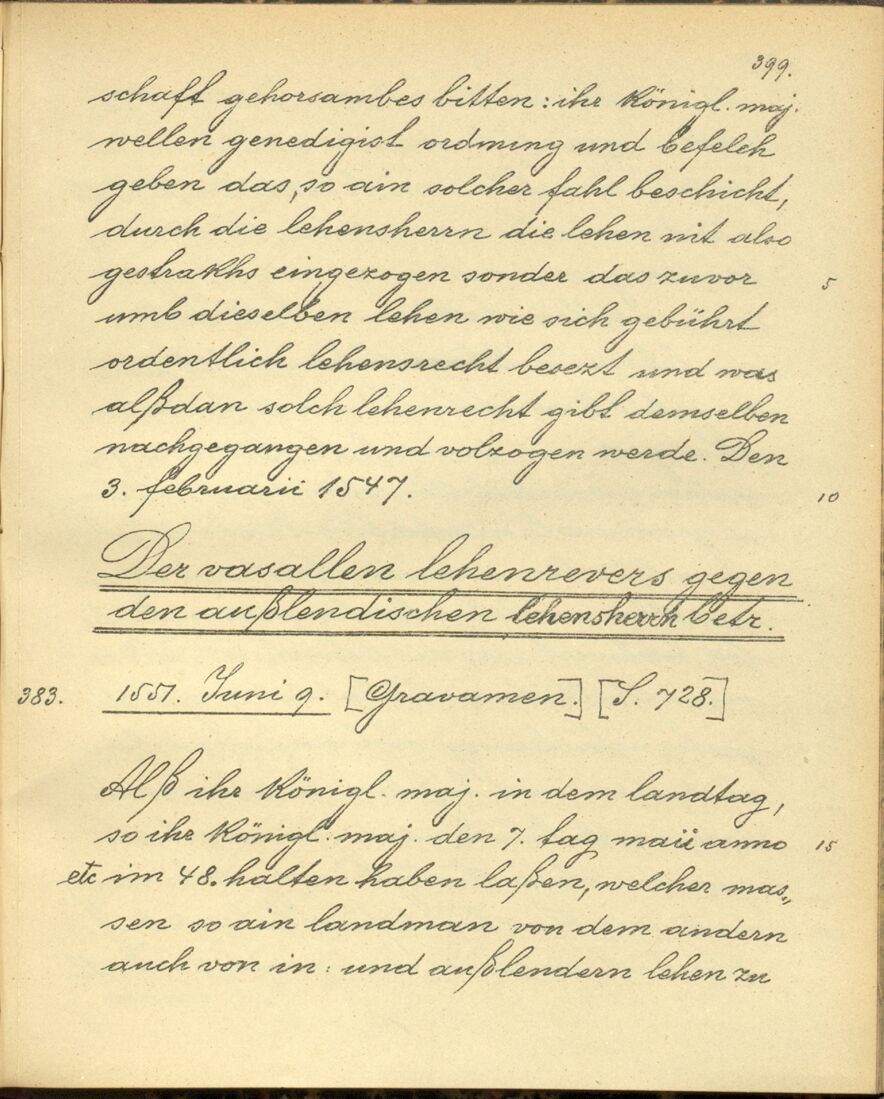 399.
schaft gehorsambes bitten: ihr Königl. maj.
wellen genedigist ordnung und befelch
geben das, so ain solcher fahl beschicht,
durch die lehensherrn die lehen nit also
gestrakhs eingezogen sonder das zuvor 5
umb dieselben lehen wie sich gebührt
ordentlich lehensrecht besezt und was
alßdan solch lehenrecht gibt demselben
nachgegangen und volzogen werde. Den
3. februarii 1547. 10
Der vasallen lehenrevers gegen
den außlendischen lehensherrn betr.
383. 1551. Juni 9. [Gravamen.] [S. 728.]
Alß ihr Königl. maj. in dem landtag,
so ihr Königl. maj. den 7. tag maii anno 15
etc im 48. halten haben laßen, welcher mas„
sen so ain landman von dem andern
auch von in: und außlendern lehen zu